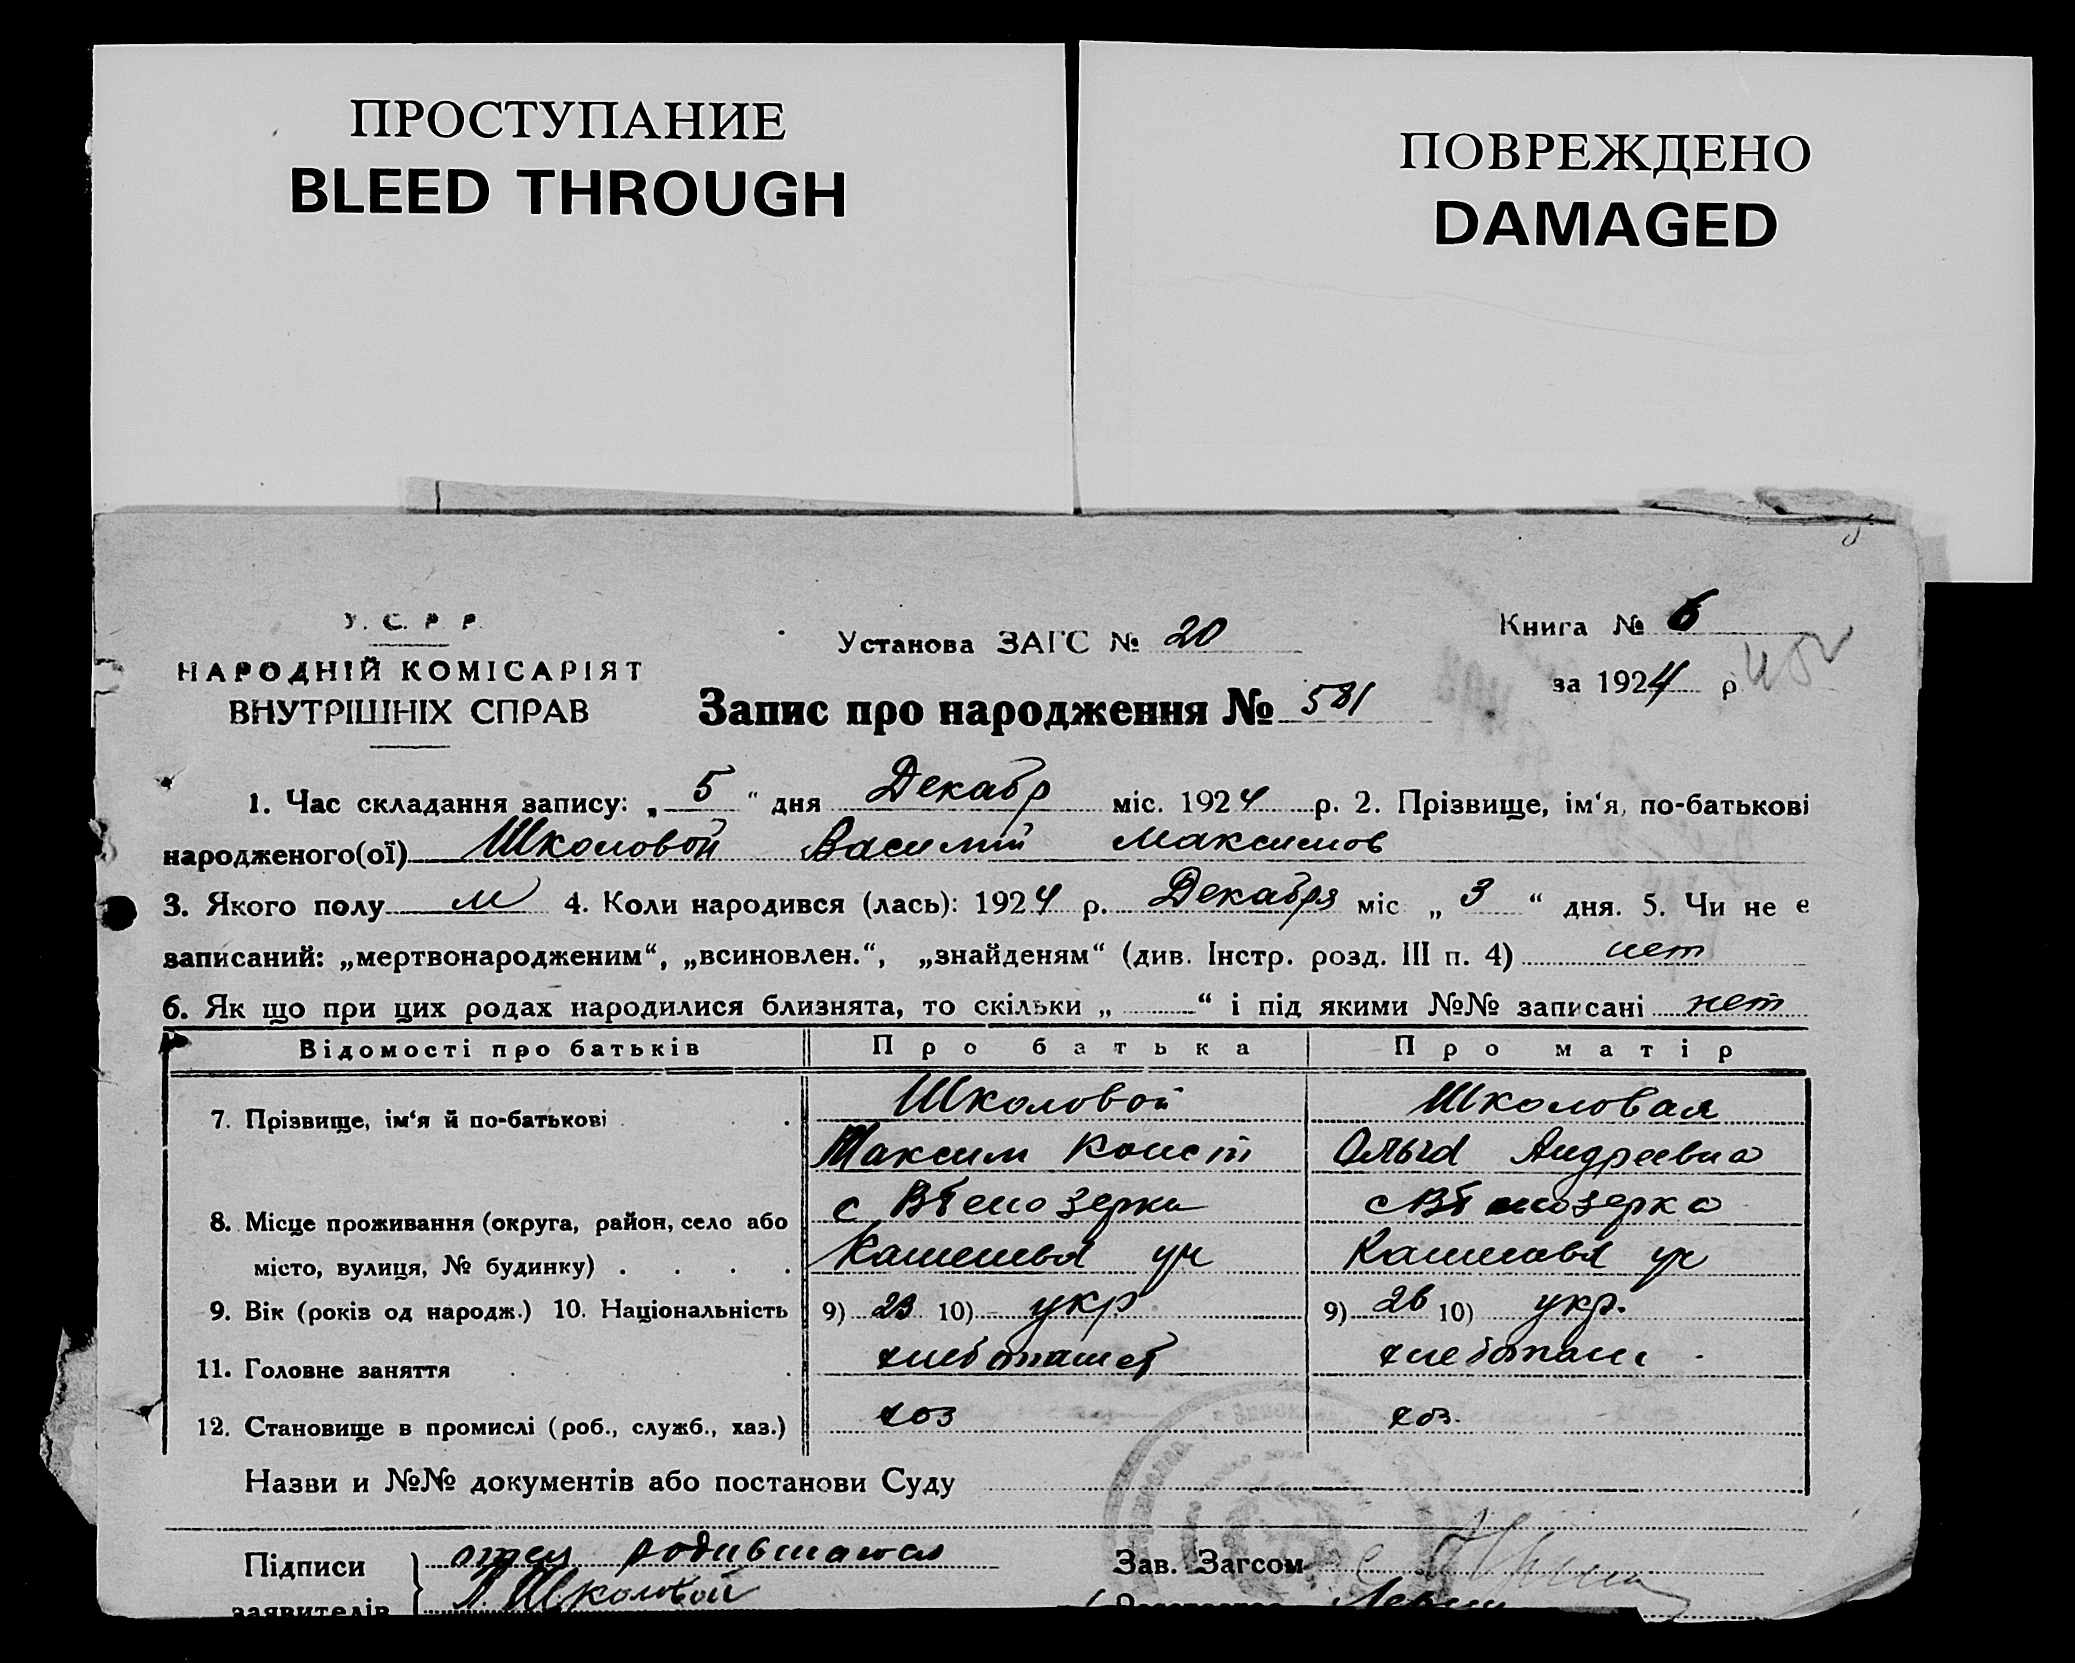 ПРОСТУПАНИЕ
BLEED THROUGH
ПОВРЕЖДЕНО
DAMAGED
У. С. Р. Р.
НАРОДНІЙ КОМІСАРІЯТ
ВНУТРІШНІХ СПРАВ
Установа ЗАГС № 20
Книга № 6
за 1924 р
Запис про народження № 581
1. Час складання запису: „ 5 “ дня Декабр міс. 1924 р. 2. Прізвище, ім‘я, по-батькові
народженого(ої) Школовой Василий Максимов
3. Якого полу м 4. Коли народився (лась): 1924 р. Декабря міс „ 3 “ дня. 5. Чи не є
записаний: „мертвонародженим“, „всиновлен.“, „знайденям“ (див. Інстр. розд. III п. 4) нет
6. Як що при цих родах народилися близнята, то скільки „ “ і під якими №№ записані нет
Відомості про батьків Про батька Про матір
7. Прізвище, ім‘я й по-батькові Школовой Школовая
Максим Конст Ольга Андреевна
8. Місце проживання (округа, район, село або
місто, вулиця, № будинку)
9. Вік (років од народж.) 10. Національність 9) 23 10) укр 9) 26 10) укр.
11. Головне заняття
12. Становище в промислі (роб., служб., хаз.) хоз хоз.
Назви и №№ документів або постанови Суду
Підписи отец родившагося Зав. Загсом
заявителів Школовой